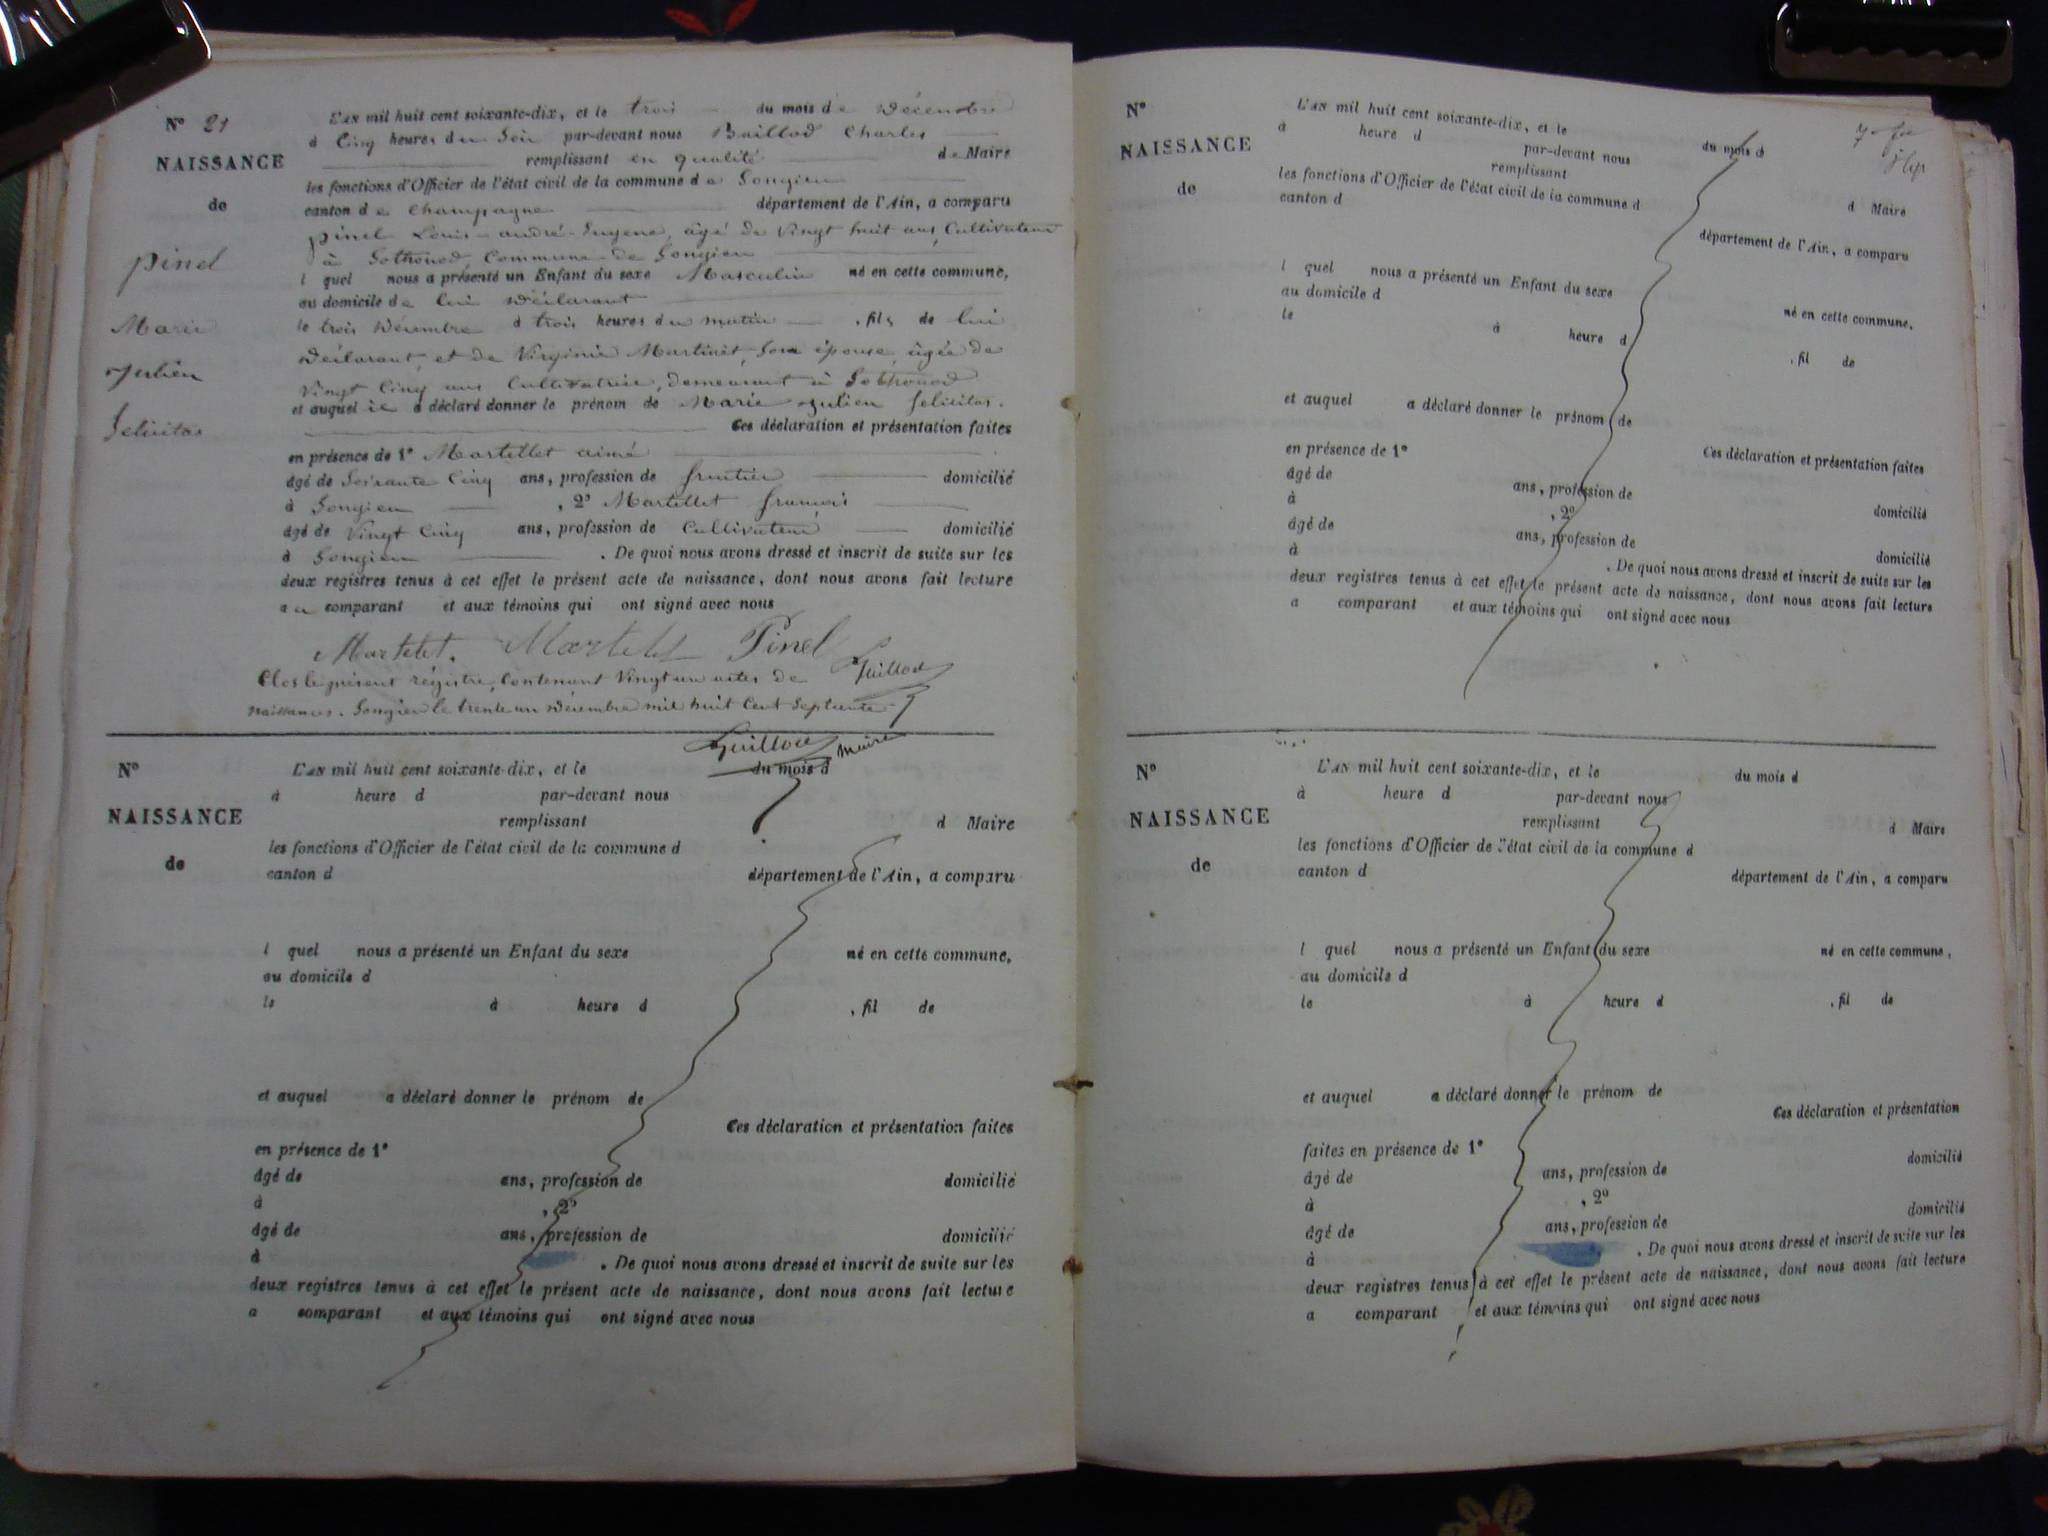 N° 21
NAISSANCE
de
Pinel
Marie
Julien
Felicitas
L'AN mil huit cent soixante-dix, et le trois du mois de Décembre
à Cinq heures du Soir par-devant nous Guillod Charles
remplissant en qualité de Maire
les fonctions d'Officier de l'état civil de la commune de Songieu
canton de Champagne département de l'Ain, a comparu
Pinel Louis-andré-Eugene, âgé de Vingt huit ans, Cultivateur
à Sothonod, Commune de Songieu
l quel nous a présenté un Enfant du sexe Masculin né en cette commune,
au domicile de lui Déclarant
le trois Décembre à trois heures du matin , fils de lui
Déclarant, et de Virginie Martinet, Son épouse, âgée de
Vingt Cinq ans Cultivatrice, demeurant à Sothonod
et auquel il a déclaré donner le prénom de Marie Julien felicitas.
Ces déclaration et présentation faites
en présence de 1° Martellet aimé
âgé de Soixante Cinq ans, profession de fruitier domicilié
à Songieu , 2° Martellet francois
âgé de Vingt Cinq ans, profession de Cultivateur domicilié
à Songieu . De quoi nous avons dressé et inscrit de suite sur les
deux registres tenus à cet effet le présent acte de naissance, dont nous avons fait lecture
au comparant et aux témoins qui ont signé avec nous
Martelet. Martelet Pinel Guillod
Clos le présent régistre, Contenant Vingt un actes de
naissances. Songieu le trente un Décembre mil huit Cent Septante
Guillod maire
N°
NAISSANCE
de
L'AN mil huit cent soixante-dix, et le du mois d
à heure d par-devant nous
remplissant d Maire
les fonctions d'Officier de l'état civil de la commune d
canton d département de l'Ain, a comparu
l quel nous a présenté un Enfant du sexe né en cette commune,
au domicile d
le à heure d , fil de
et auquel a déclaré donner le prénom de
Ces déclaration et présentation faites
en présence de 1°
âgé de ans, profession de domicilié
à , 2°
âgé de ans, profession de domicilié
à . De quoi nous avons dressé et inscrit de suite sur les
deux registres tenus à cet effet le présent acte de naissance, dont nous avons fait lecture
a comparant et aux témoins qui ont signé avec nous
N°
NAISSANCE
de
L'AN mil huit cent soixante-dix, et le du mois d
à heure d par-devant nous
remplissant d Maire
les fonctions d'Officier de l'état civil de la commune d
canton d département de l'Ain, a comparu
l quel nous a présenté un Enfant du sexe né en cette commune,
au domicile d
le à heure d , fil de
et auquel a déclaré donner le prénom de
Ces déclaration et présentation faites
en présence de 1°
âgé de ans, profession de domicilié
à , 2°
âgé de ans, profession de domicilié
à . De quoi nous avons dressé et inscrit de suite sur les
deux registres tenus à cet effet le présent acte de naissance, dont nous avons fait lecture
a comparant et aux témoins qui ont signé avec nous
N°
NAISSANCE
de
L'AN mil huit cent soixante-dix, et le du mois d
à heure d par-devant nous
remplissant d Maire
les fonctions d'Officier de l'état civil de la commune d
canton d département de l'Ain, a comparu
l quel nous a présenté un Enfant du sexe né en cette commune,
au domicile d
le à heure d , fil de
et auquel a déclaré donner le prénom de
Ces déclaration et présentation
faites en présence de 1°
âgé de ans, profession de domicilié
à , 2°
âgé de ans, profession de domicilié
à . De quoi nous avons dressé et inscrit de suite sur les
deux registres tenus à cet effet le présent acte de naissance, dont nous avons fait lecture
a comparant et aux témoins qui ont signé avec nous